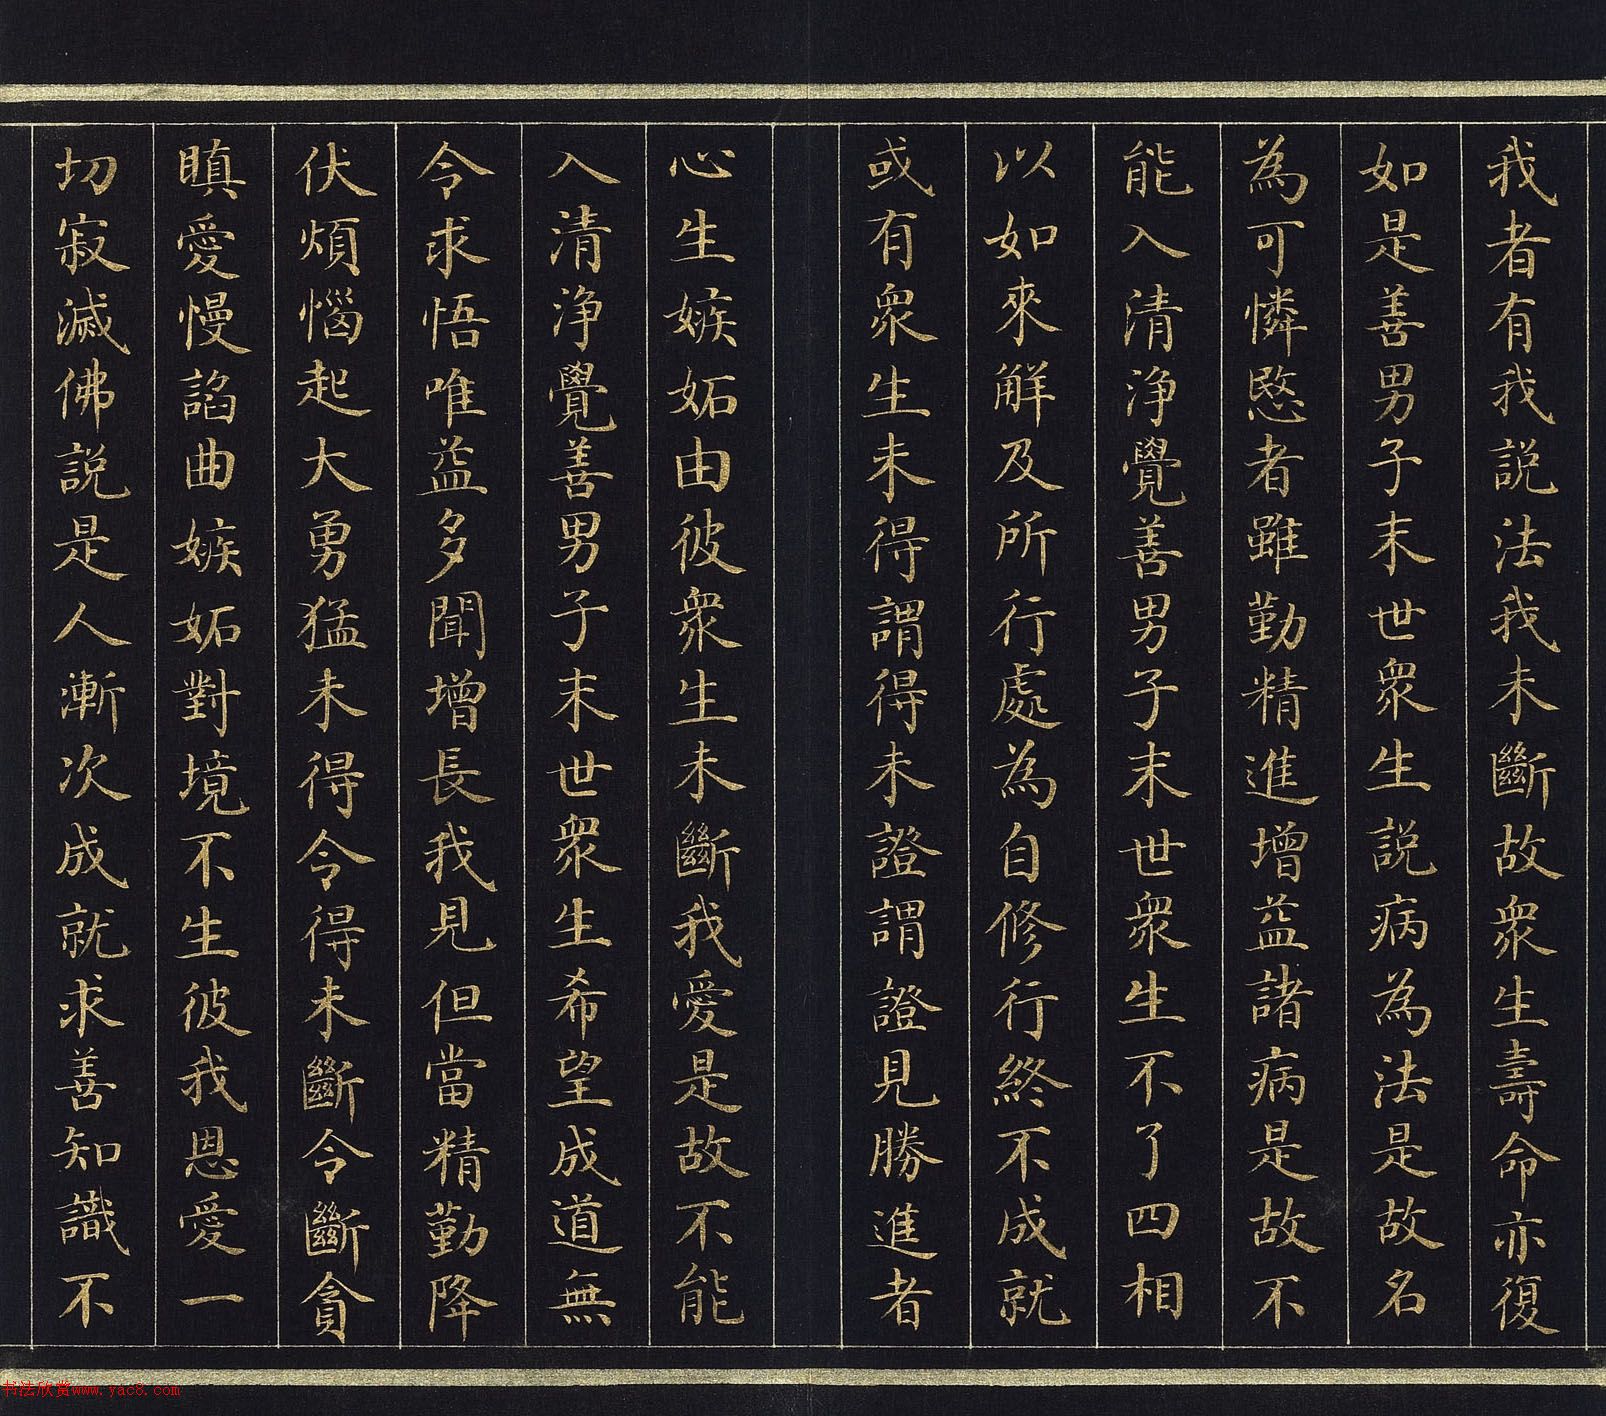 我者有我說法我未斷故衆生壽命亦復
如是善男子末世衆生說病為法是故名
為可憐愍者雖勤精進增益諸病是故不
能入清淨覺善男子末世衆生不了四相
以如來解及所行處為自修行終不成就
或有衆生未得謂得未證謂證見勝進者
心生嫉妬由彼衆生未斷我愛是故不能
入清淨覺善男子末世衆生希望成道無
令求悟唯益多聞增長我見但當精勤降
伏煩惱起大勇猛未得令得未斷令斷貪
瞋愛慢諂曲嫉妬對境不生彼我恩愛一
切寂滅佛說是人漸次成就求善知識不
书法欣赏www.yac8.com